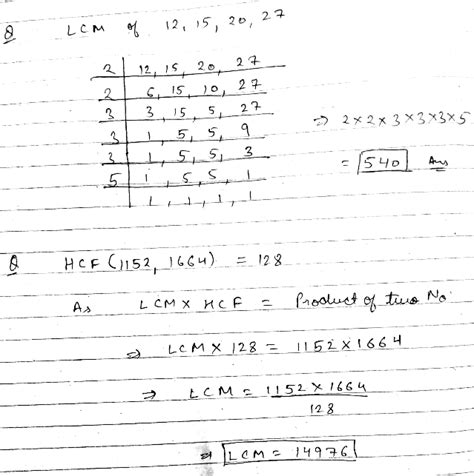 Q LCM of 12, 15, 20, 27
2 | 12, 15, 20, 27
2 | 6, 15, 10, 27
3 | 3, 15, 5, 27
3 | 1, 5, 5, 9
3 | 1, 5, 5, 3
5 | 1, 5, 5, 1
1, 1, 1, 1
⇒ 2×2×3×3×3×5
= 540 Ans
Q HCF(1152, 1664) = 128
As LCM × HCF = Product of two No.
⇒ LCM × 128 = 1152 × 1664
⇒ LCM = 1152 × 1664
128
⇒ LCM = 14976